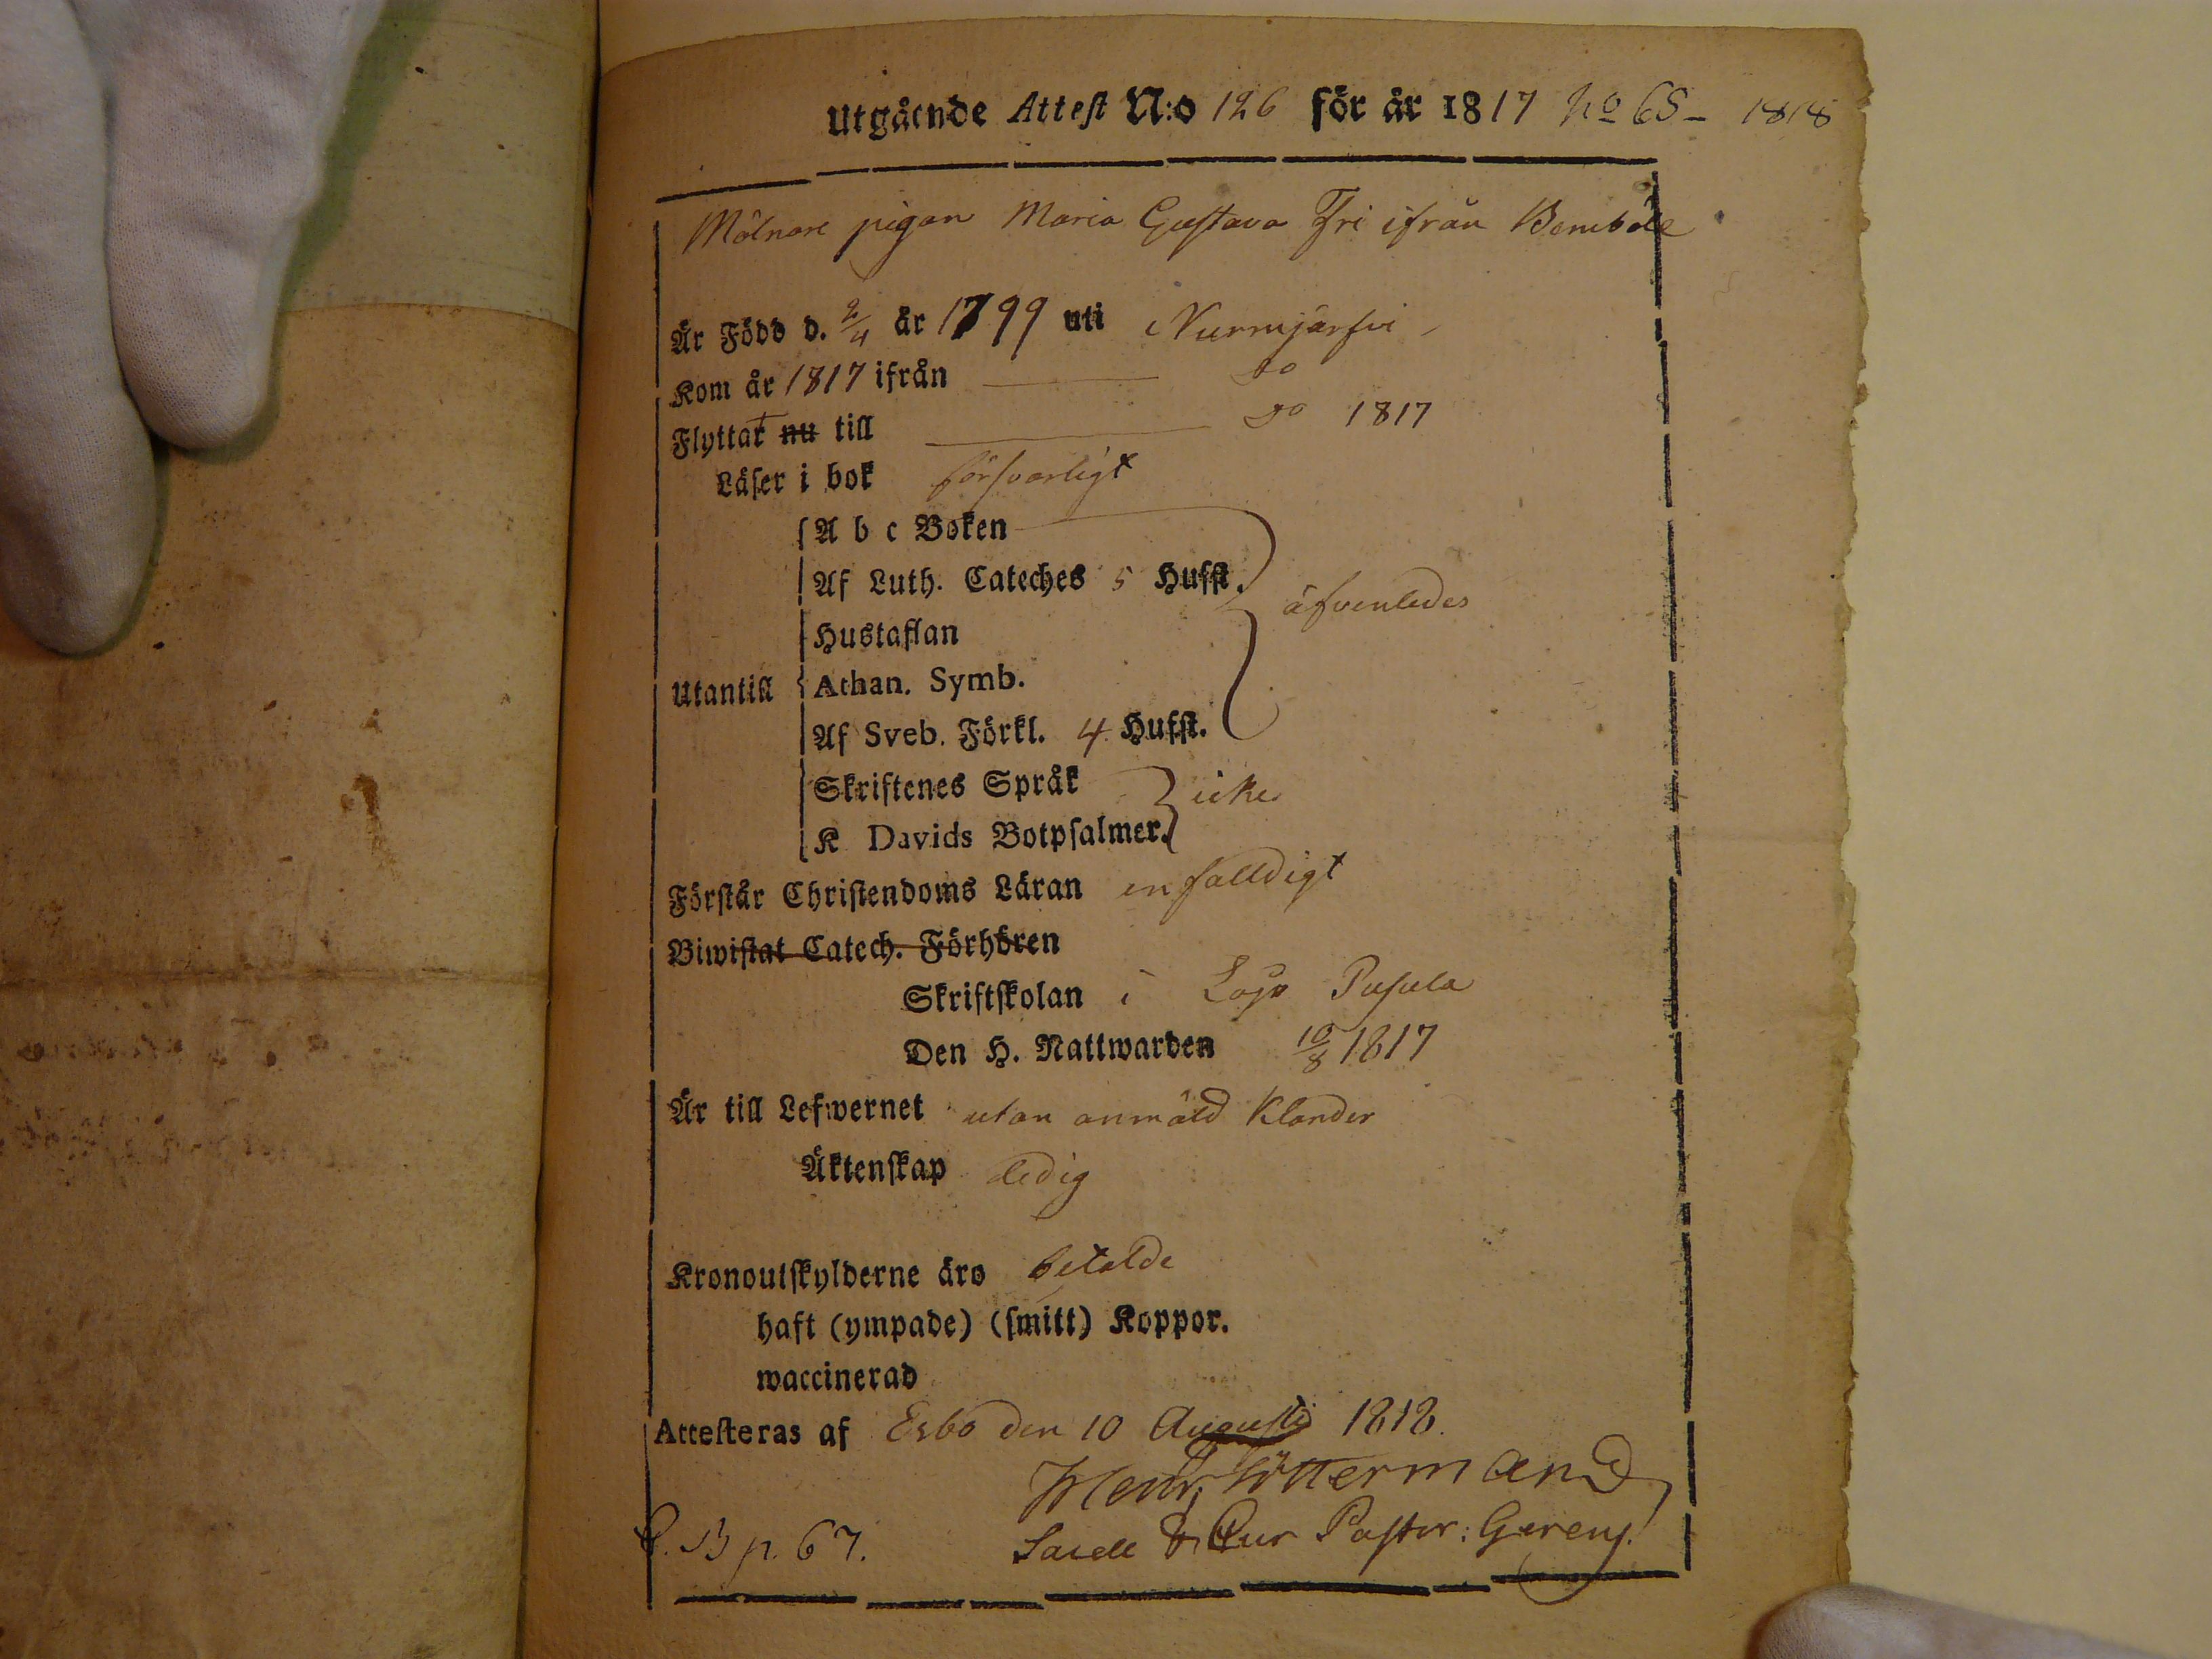 Utgående Attest N:o 126 för år 1817 No 68 - 1818
Mölnare pigan Maria Gustava Fri ifrån Bemböle
Är Född d. 2/4 år 1799 uti Nurmjärfvi
Kom år 1817 ifrån do
Flyttat nu till do 1817
Läser i bok försvarligt
A b c Boken
Af Luth. Cateches 5 Hufst.
äfvenledes
Hustaflan
Utantill Athan. Symb.
Af Sveb. Förkl. 4 Hufst.
Skriftenes Språk
icke
K Davids Botpsalmer.
Förstår Christendoms Läran enfalldigt
Biwistat Catech. Förhören
Skriftskolan i Lojo Pusula
Den H. Nattwarden 10/8 1817
Är till Lefwernet utan anmäld Klander
Äktenskap ledig
Kronoutskylderne äro betalde
haft (ympade) (smitt) Koppor.
waccinerad
Attesteras af Esbo den 10 Augusti 1818.
Henr.
B p. 67. Pastor: